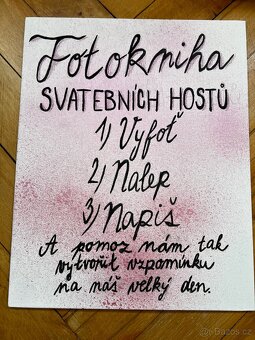 Fotokniha
SVATEBNÍCH HOSTŮ
1) Vyfoť
2) Nalep
3) Napiš
A pomoz nám tak
vytvořit vzpomínku
na náš velký den.